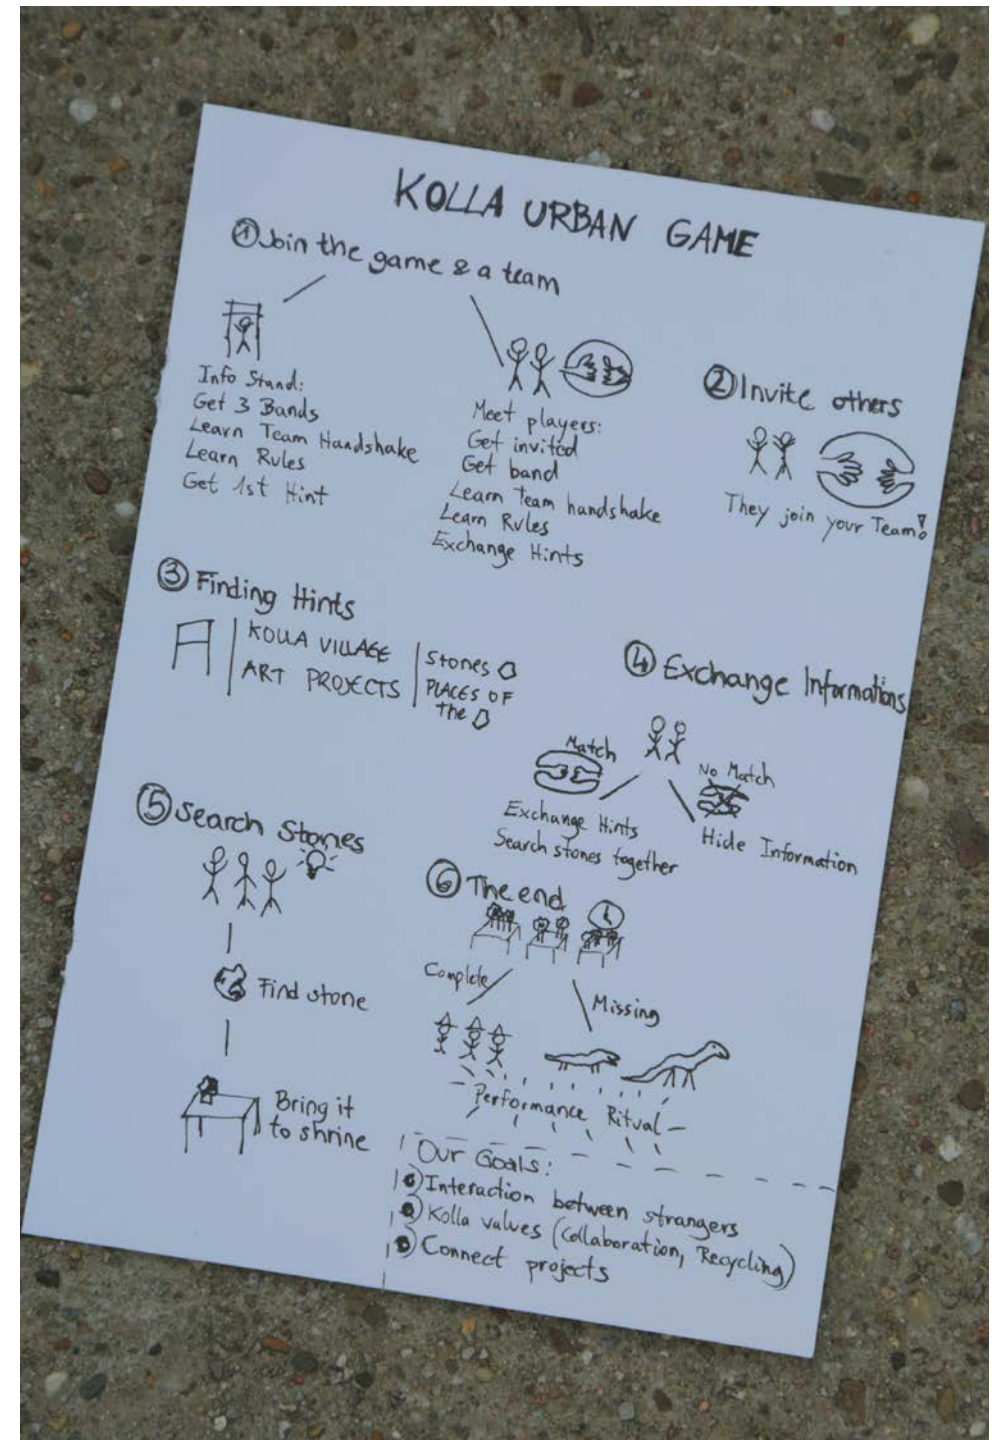 KOLLA URBAN GAME
① Join the game & a team
Info Stand:
Get 3 Bands
Learn Team Handshake
Learn Rules
Get 1st Hint
Meet players:
Get invited
Get band
Learn Team handshake
Learn Rules
Exchange Hints
② Invite others
They join your Team!
③ Finding Hints
KOLLA VILLAGE
ART PROJECTS
Stones
PLACES OF
the
④ Exchange Informations
Match
Exchange Hints
Search stones together
No Match
Hide Information
⑤ Search Stones
Find stone
Bring it
to shrine
⑥ The end
Complete
Missing
Performance Ritual
Our Goals:
Interaction between strangers
Kolla values (Collaboration, Recycling)
Connect projects